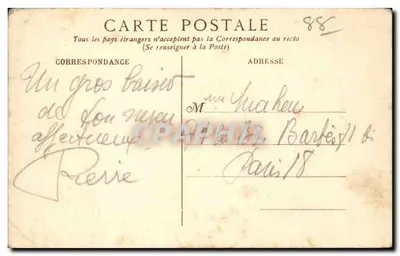 CARTE POSTALE
88
Tous les pays étrangers n'acceptent pas la Correspondance au recto
(Se renseigner à la Poste)
CORRESPONDANCE
ADRESSE
Un gros baiser
de ton neveu
affectueux
Pierre
M me
Bd Barbès
Paris 18